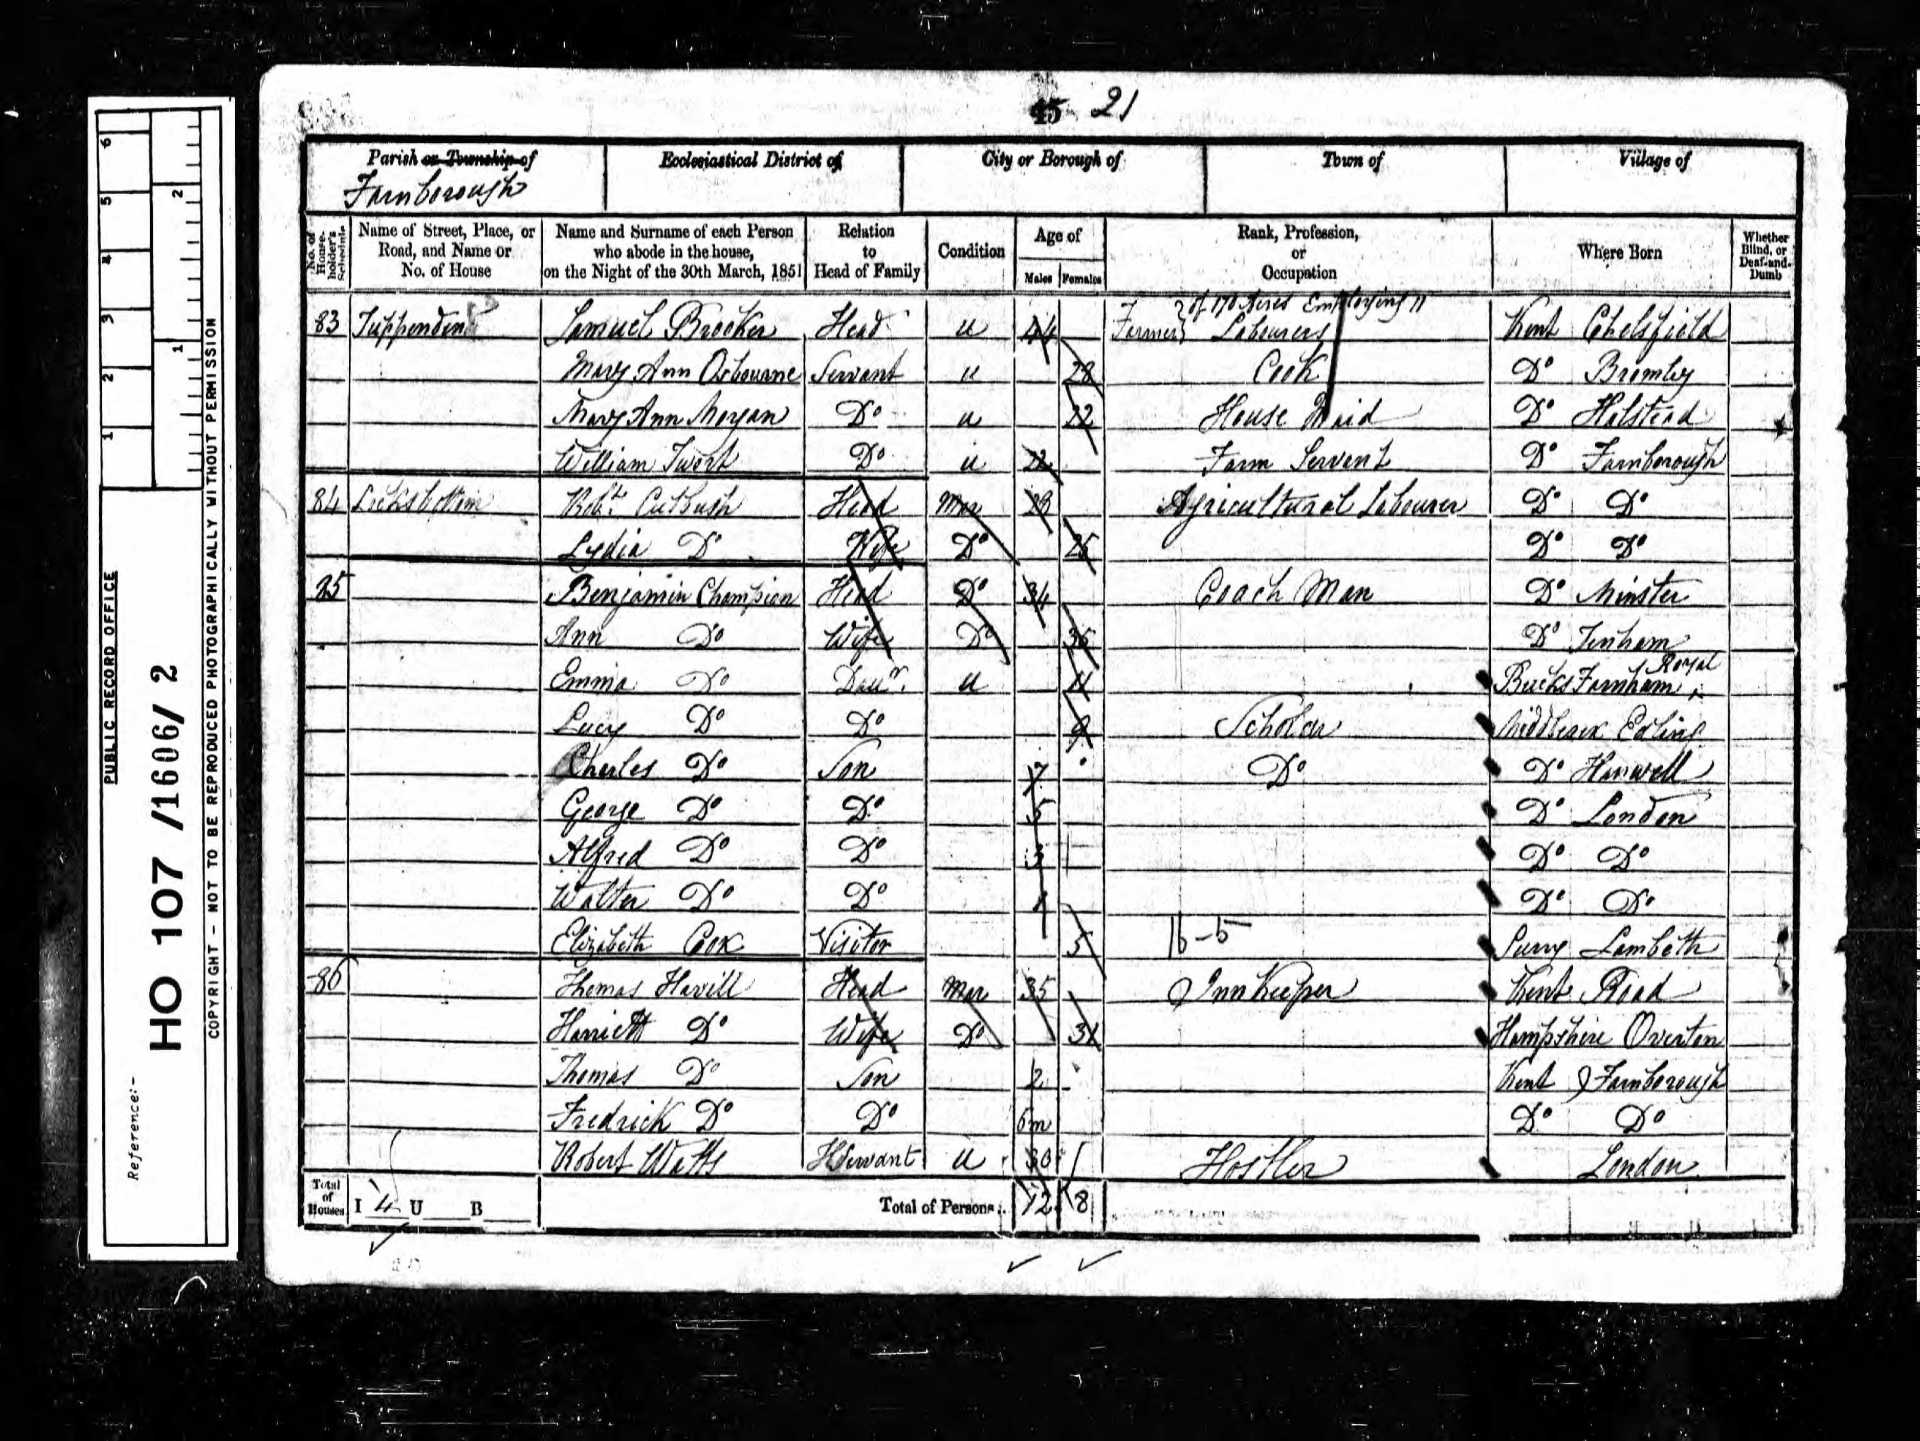 45 21
Parish or Township of
Ecclesiastical District of
City or Borough of
Town of
Village of
Farnborough
No. of Householder's Schedule
Name of Street, Place, or Road, and Name or No. of House
Name and Surname of each Person who abode in the house, on the Night of the 30th March, 1851
Relation to Head of Family
Condition
Age of
Males
Females
Rank, Profession, or Occupation
Where Born
Whether Blind, or Deaf-and-Dumb
83 Tuppenden Samuel Brooker Head u 44 Farmer of 170 Acres Employing 11 Labourers Kent Chelsfield
Mary Ann Osbourne Servant u 28 Cook Do Bromley
Mary Ann Morgan Do u 22 House Maid Do Halstead
William Twort Do u 22 Farm Servent Do Farnborough
84 Locksbottom Robt Cutbush Head Mar 29 Agricultural Labourer Do Do
Lydia Do Wife Do 25 Do Do
85 Benjamin Champion Head Do 34 Coach Man Do Minster
Ann Do Wife Do 36 Do Tenham
Emma Do Daur u 11 Bucks Farnham Royal
Lucy Do Do 9 Scholar Middlesex Ealing
Charles Do Son 7 Do Do Hanwell
George Do Do 5 Do London
Alfred Do Do 3 Do Do
Walter Do Do 1 Do Do
Elizabeth Cook Visitor 5 16-5 Surry Lambeth
86 Thomas Havill Head Mar 35 Inn Keeper Kent Road
Harriett Do Wife Do 31 Hampshire Overton
Thomas Do Son 2 Kent Farnborough
Fredrick Do Do 6m Do Do
Robert Watts H Servant u 30 Hostler London
Total of Houses I 4 U B Total of Persons 12 8
PUBLIC RECORD OFFICE
Reference:-
HO 107 /1606/ 2
COPYRIGHT - NOT TO BE REPRODUCED PHOTOGRAPHICALLY WITHOUT PERMISSION
1 2 3 4 5 6
1 2